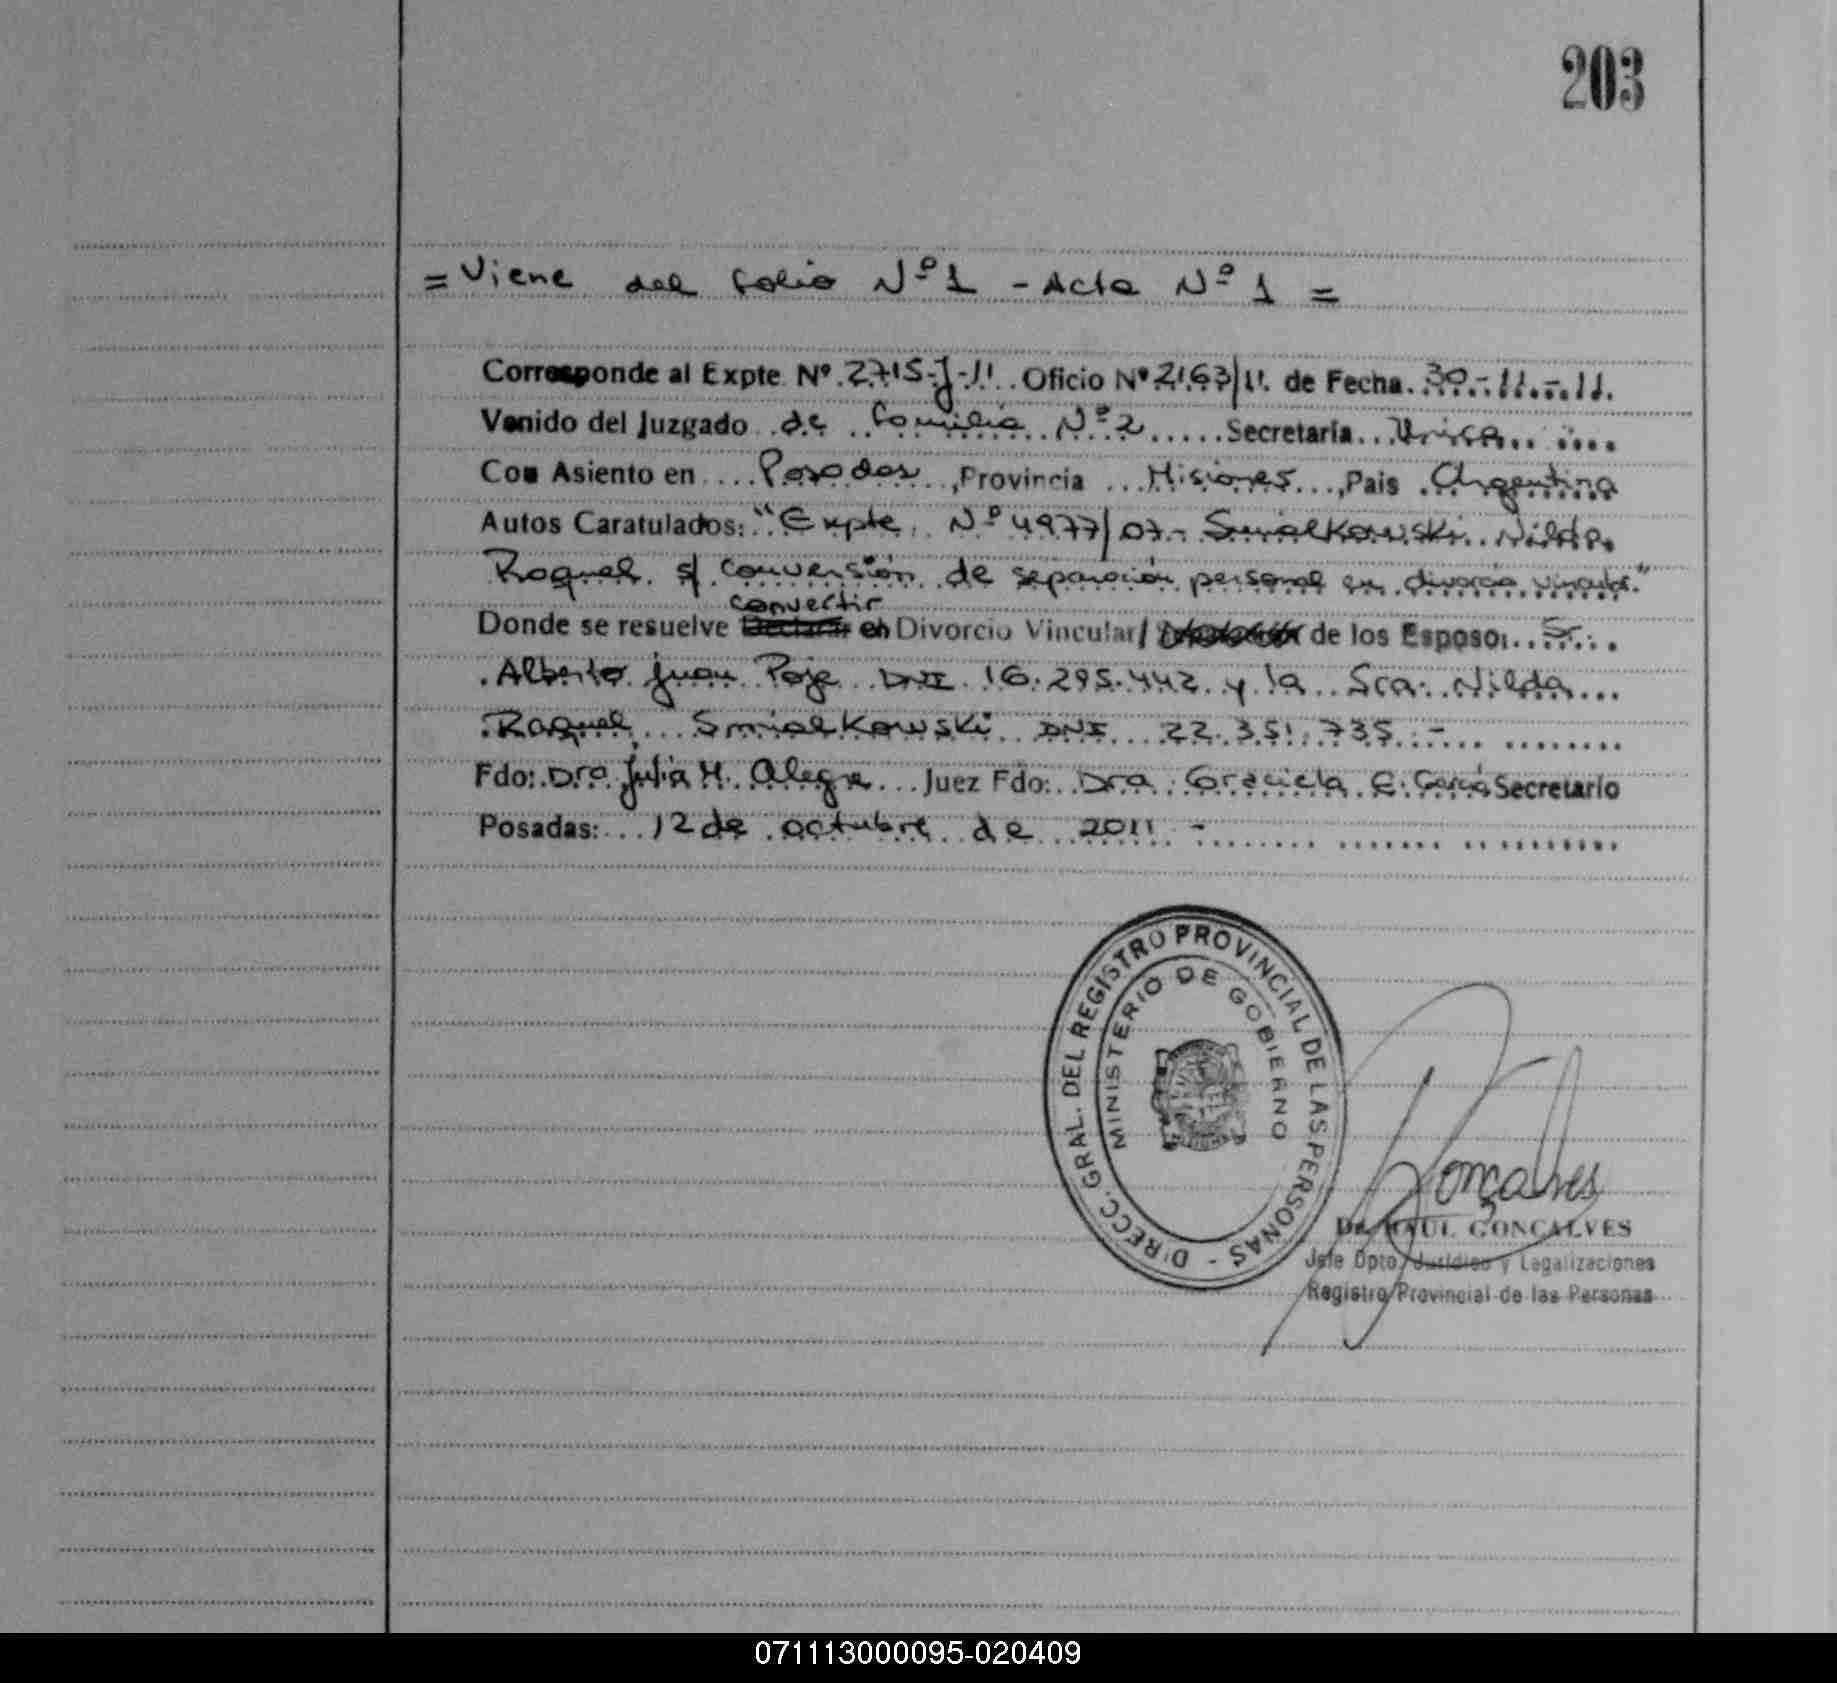 203
= Viene del folio Nº 1 - Acta Nº 1 =
Corresponde al Expte. Nº. 2715-J-11.. Oficio Nº 2163/11. de Fecha. 30.-11.-11.
Venido del Juzgado de Familia Nº 2 ..... Secretaría... Unica.......
Con Asiento en .... Posadas ..., Provincia ... Misiones..., Pais . Argentina
Autos Caratulados: "Expte. Nº 4977/07- Smialkowski. Nilda.
Raquel. s/ conversión de separación personal en divorcio vincular."
convertir
Donde se resuelve en Divorcio Vincular/ de los Esposo: .. Sr...
. Alberto Juan DNI 16.295.442 y la Sra. Nilda...
Raquel.... Smialkowski DNI 22.351.735.-
Fdo: Dra. Julia M. Alegre... Juez Fdo: Dra. Graciela E. García Secretario
Posadas: ... 12 de octubre de 2011 -
DIRECC. GRAL. DEL REGISTRO PROVINCIAL DE LAS PERSONAS -
MINISTERIO DE GOBIERNO
Gonçalves
Dr. RAUL GONCALVES
Jefe Dpto. Jurídico y Legalizaciones
Registro Provincial de las Personas
071113000095-020409